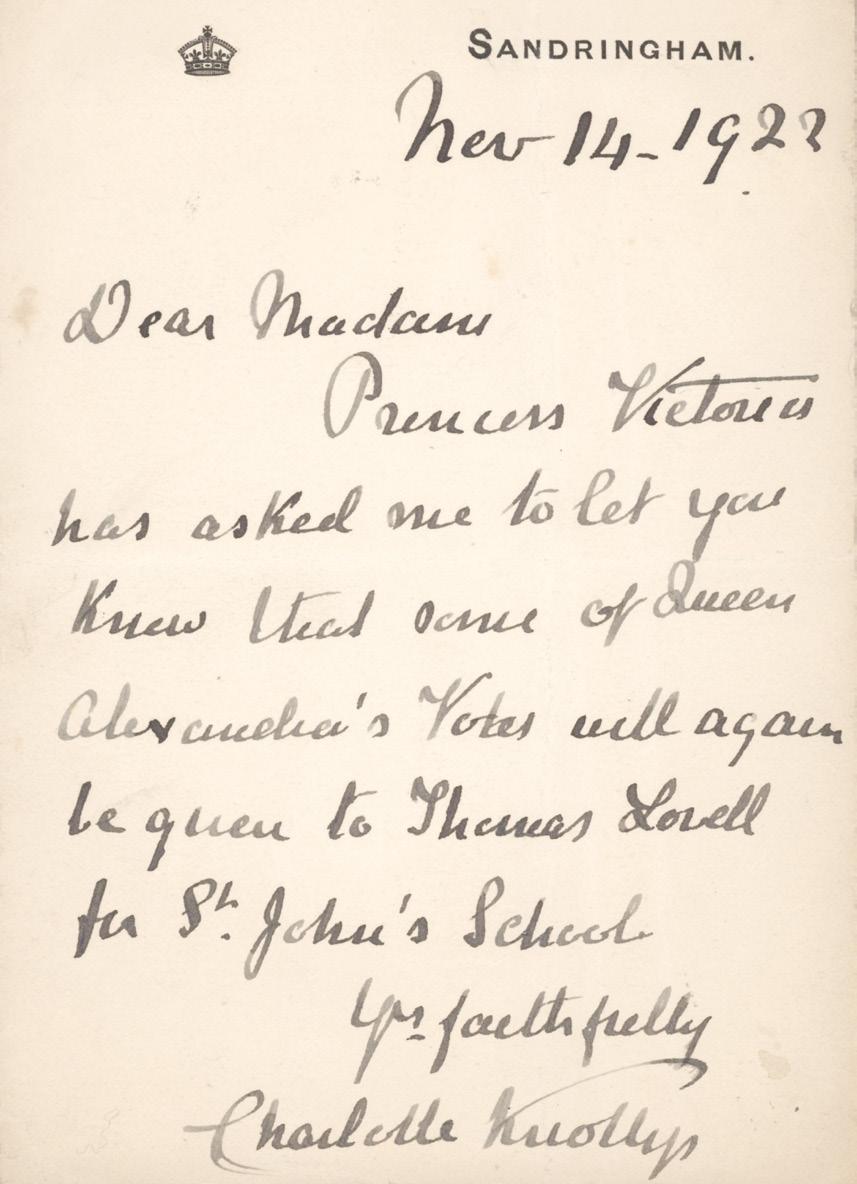 SANDRINGHAM.
Nov 14-1922
Dear Madam
Princess Victoria
has asked me to let you
know that some of Queen
Alexandra's Votes will again
be given to Thomas Lovell
for St. John's School
Yrs faithfully
Charlotte Knollys